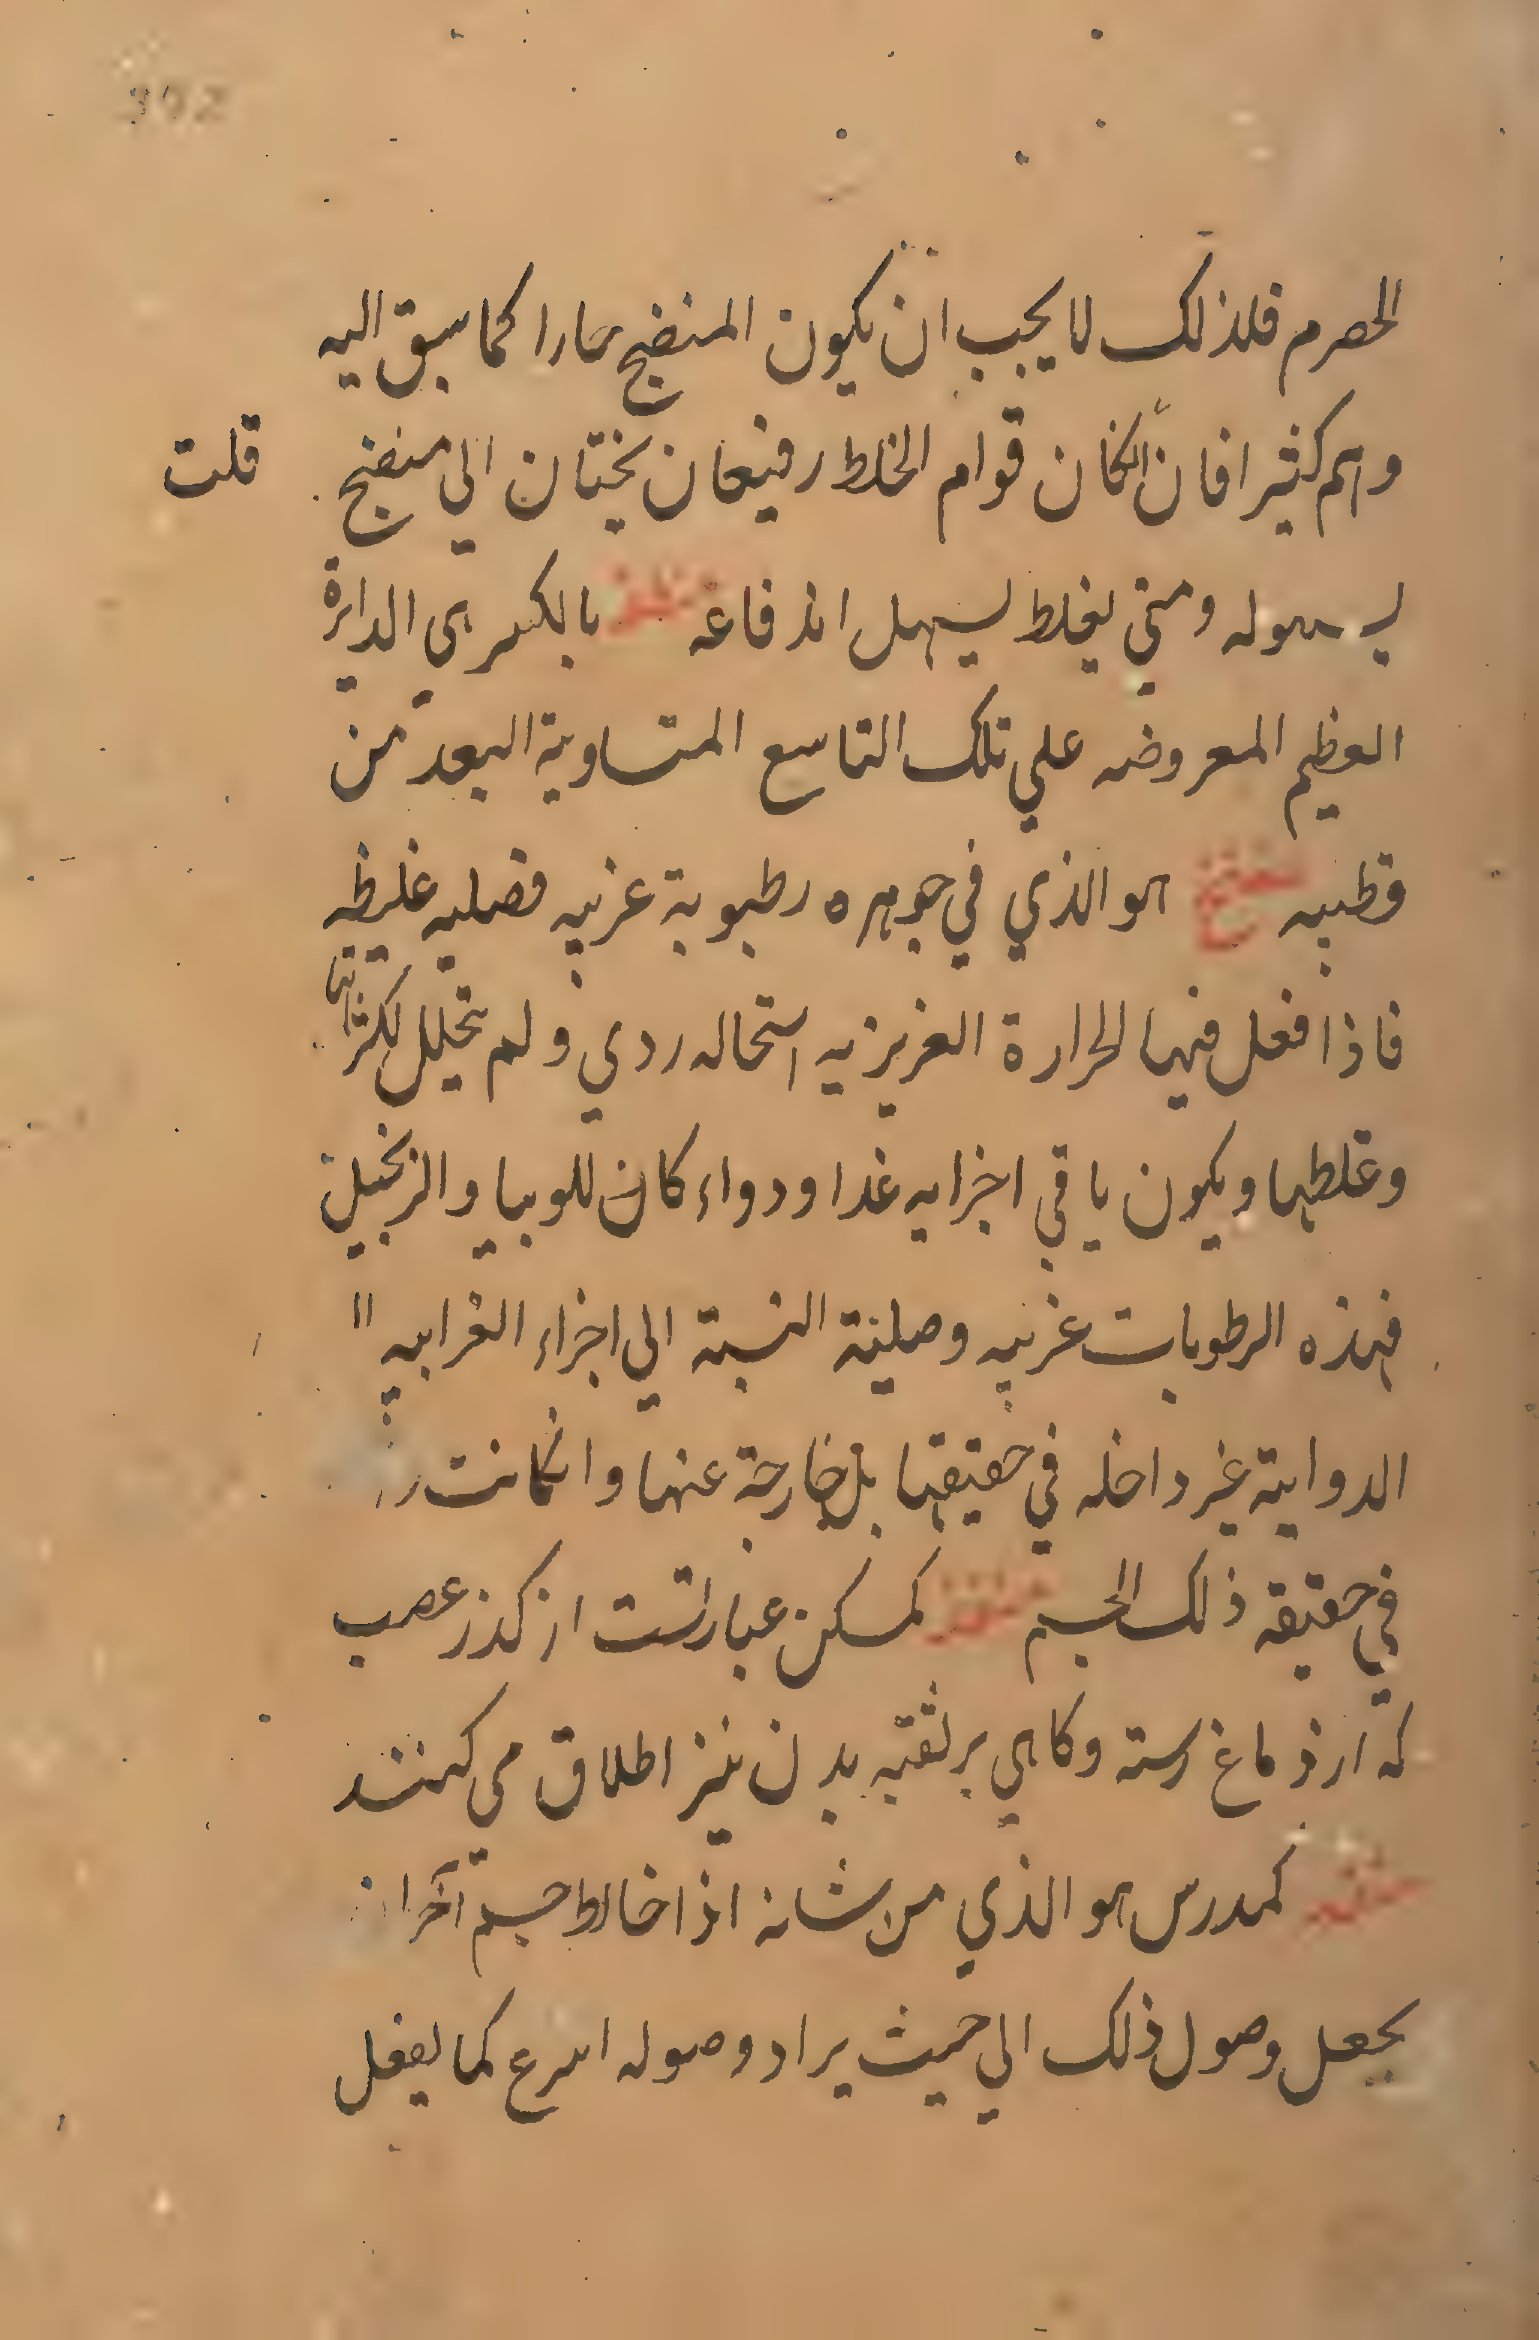 الحصرم فلذلك لا يجب ان يكون المنضج حارا كما سبق اليه
وهم كثير افان انكان قوام الخلط رفيعان يحتان الى منضج
قلت
بسهوله ومتي يغلط ليسهل اندفاعه بالكسر هى الدايرة
العظيم المعروضه علي تلك التاسع المتساوية البعد من
قطبيه منفخ هو الذي في جوهره رطبوبة غربيه فضليه غليظه
فاذا فعل فيها الحرارة الغريزيه استحاله ردي ولم تحلل لكثرتها
وغلطها ويكون باقي اجزايه غدا ودواء كان للوبيا والزنجبيل
فهذه الرطوبات غربيه وصلية النسبة الي اجزاء الغرابيه
الدوايية غير داخله في حقيقتها بل خارجة عنها وانكانت
في حقيقه ذلك الجسم منفذ كمسكن عبارتست از كذر عصب
كه از دماغ رسته وكاهي بر ثقبه بدن نيز اطلاق مي كنند
منفذ كمدرس هو الذي من شانه اذا خالط جسم آخر ان
يجعل وصول ذلك الي حيث يراد وصوله اسرع كما يفعل